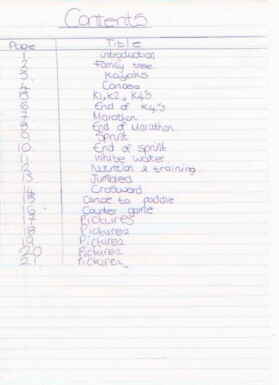 Contents
Page Title
1 introduction
2 family tree
3 Kayaks
4 Canoes
5 K1, K2, K4S
6 End of K4S
7 Marathon
8 End of Marathon
9 Sprint
10 End of sprint
11 White water
12 Nutrition & training
13 Jumbled
14 Crossword
15 Canoe to paddle
16 Counter game
17 Pictures
18 Pictures
19 Pictures
20 Pictures
21 Pictures